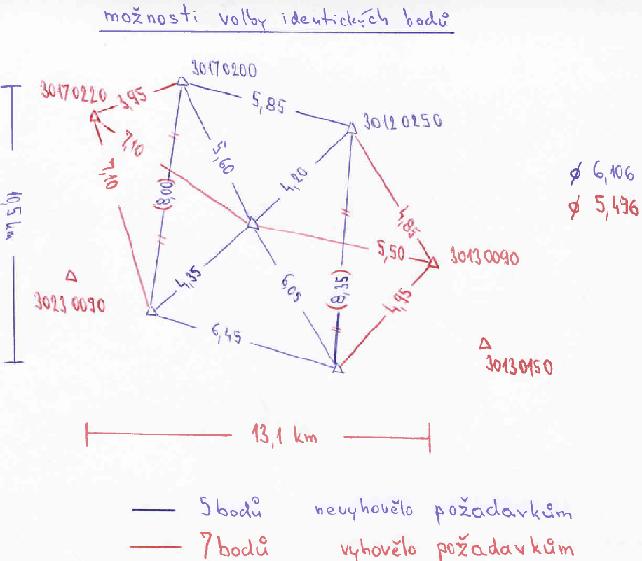 možnosti volby identických bodů
30170200
30170220
3,95
5,85
30120250
7,10
7,10
5,60
4,20
(8,00)
ø 6,106
ø 5,496
10,5 km
4,85
5,50
30130090
30230090
4,35
6,05
(8,35)
4,95
6,45
30130150
13,1 km
5 bodů nevyhovělo požadavkům
7 bodů vyhovělo požadavkům